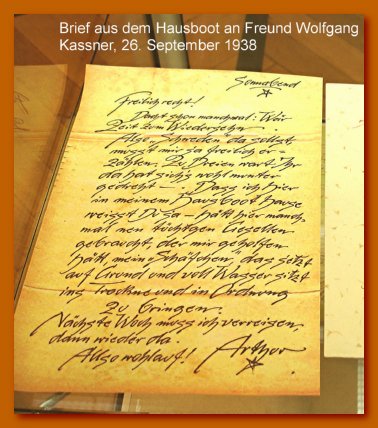 Brief aus dem Hausboot an Freund Wolfgang
Kassner, 26. September 1938
Sonnabend
Freilich recht!
Dacht schon manchmal: Wär
Zeit zum Wiedersehn.
Also, Schneden da selbst
musst mir ja freilich er-
zählen. Zu Dreien wart Ihr
da hat sich's wohl munter
gedreht –. Dass ich hier
in meinem Hausboot hause
weisst Du ja – hätt hier manch
mal nen tüchtgen Gesellen
gebraucht, der mir geholfen
hätt, mein „Schäfchen, das setzt
auf Grund und voll Wasser sitzt
ins Trockne und in Ordnung
zu bringen.
Nächste Woch muss ich verreisen,
dann wieder da.
Allso wohlauf! Arthur